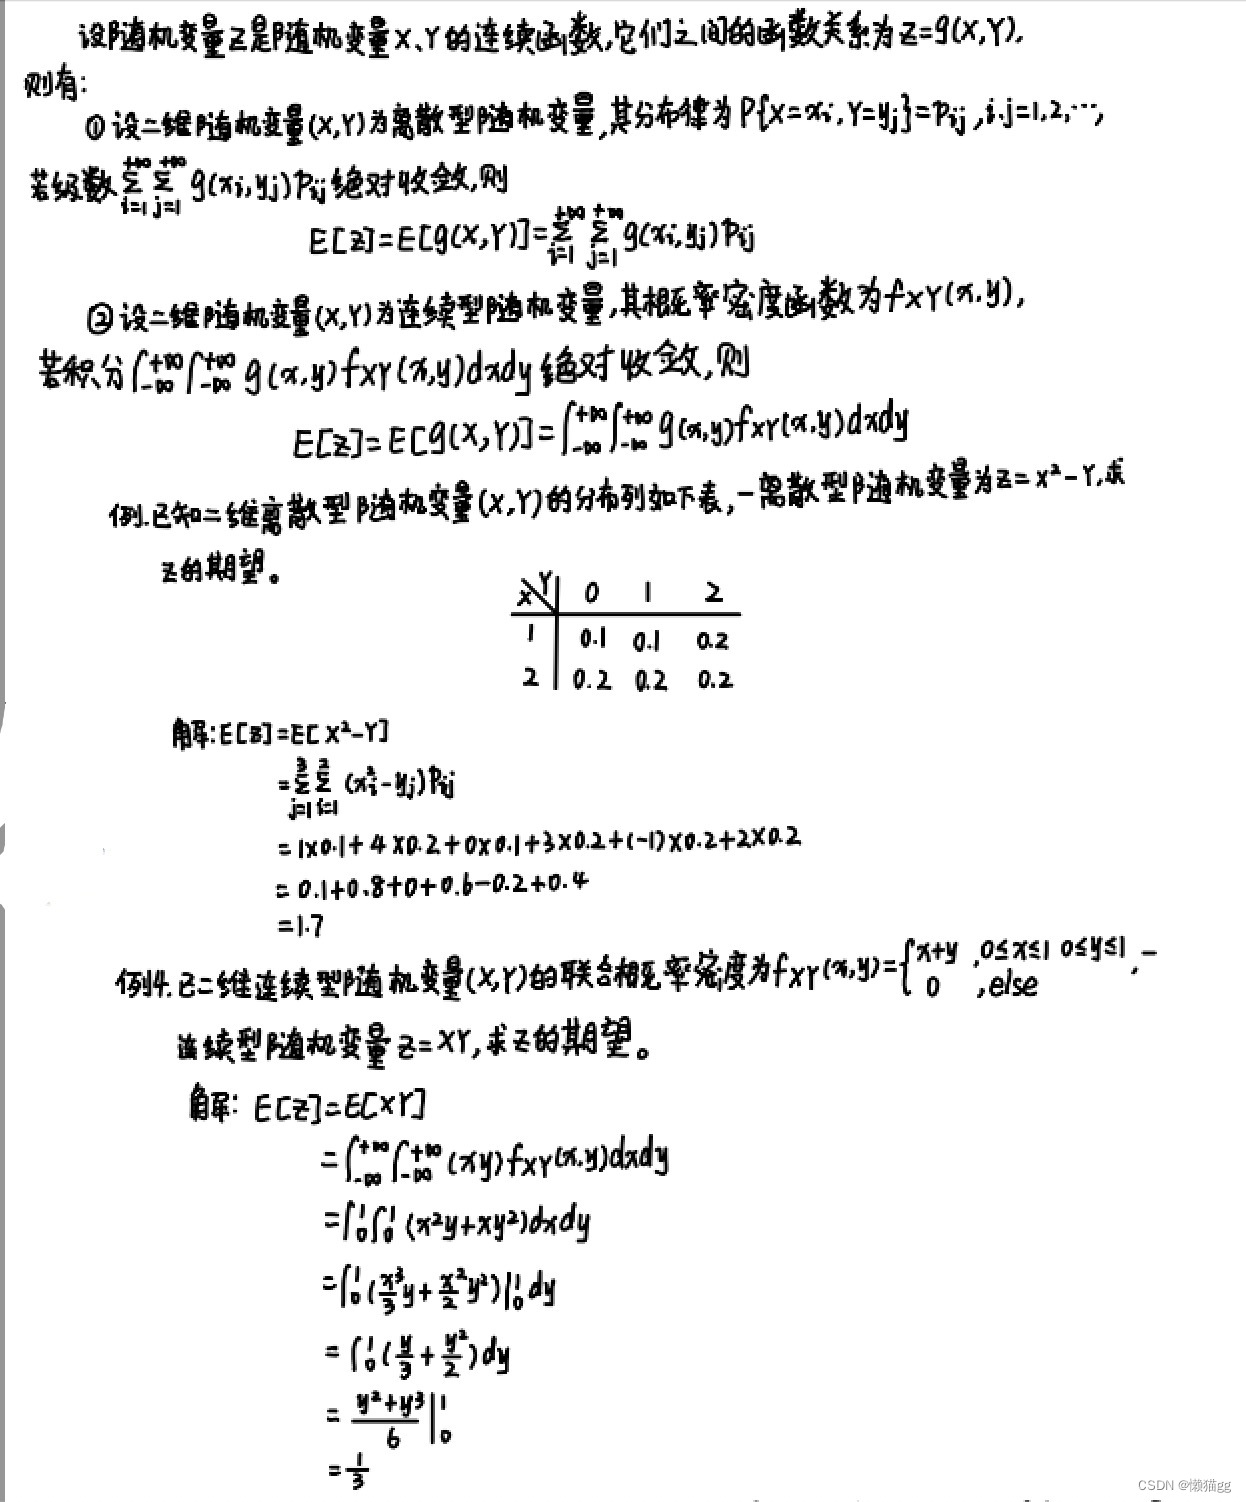 设随机变量Z是随机变量X、Y的连续函数,它们之间的函数关系为Z=g(X,Y),
则有:
①设二维随机变量(X,Y)为离散型随机变量,其分布律为P{X=xᵢ,Y=yⱼ}=pᵢⱼ,i.j=1,2,…,
若级数∑_{i=1}^{+∞}∑_{j=1}^{+∞} g(xᵢ,yⱼ)Pᵢⱼ绝对收敛,则
E[Z]=E[g(X,Y)]=∑_{i=1}^{+∞}∑_{j=1}^{+∞} g(xᵢ,yⱼ)Pᵢⱼ
②设二维随机变量(X,Y)为连续型随机变量,其概率密度函数为fXY(x,y),
若积分∫_{-∞}^{+∞}∫_{-∞}^{+∞} g(x,y)fXY(x,y)dxdy绝对收敛,则
E[Z]=E[g(X,Y)]=∫_{-∞}^{+∞}∫_{-∞}^{+∞} g(x,y)fXY(x,y)dxdy
例.已知二维离散型随机变量(X,Y)的分布列如下表,一离散型随机变量为Z=X²-Y,求
Z的期望。
X Y 0 1 2
1 0.1 0.1 0.2
2 0.2 0.2 0.2
解:E[Z]=E[X²-Y]
=∑_{j=1}^{3}∑_{i=1}^{2} (xᵢ²-yⱼ)Pᵢⱼ
=1×0.1+4×0.2+0×0.1+3×0.2+(-1)×0.2+2×0.2
=0.1+0.8+0+0.6-0.2+0.4
=1.7
例4.已二维连续型随机变量(X,Y)的联合概率密度为fXY(x,y)={x+y ,0≤x≤1 0≤y≤1 ,一
0 ,else
连续型随机变量Z=XY,求Z的期望。
解: E[Z]=E[XY]
=∫_{-∞}^{+∞}∫_{-∞}^{+∞} (xy)fXY(x,y)dxdy
=∫_0^1∫_0^1 (x²y+xy²)dxdy
=∫_0^1 (x³/3 y+x²/2 y²)|_0^1 dy
=∫_0^1 (y/3+y²/2)dy
=(y²+y³)/6 |_0^1
=1/3
CSDN @懒猫gg